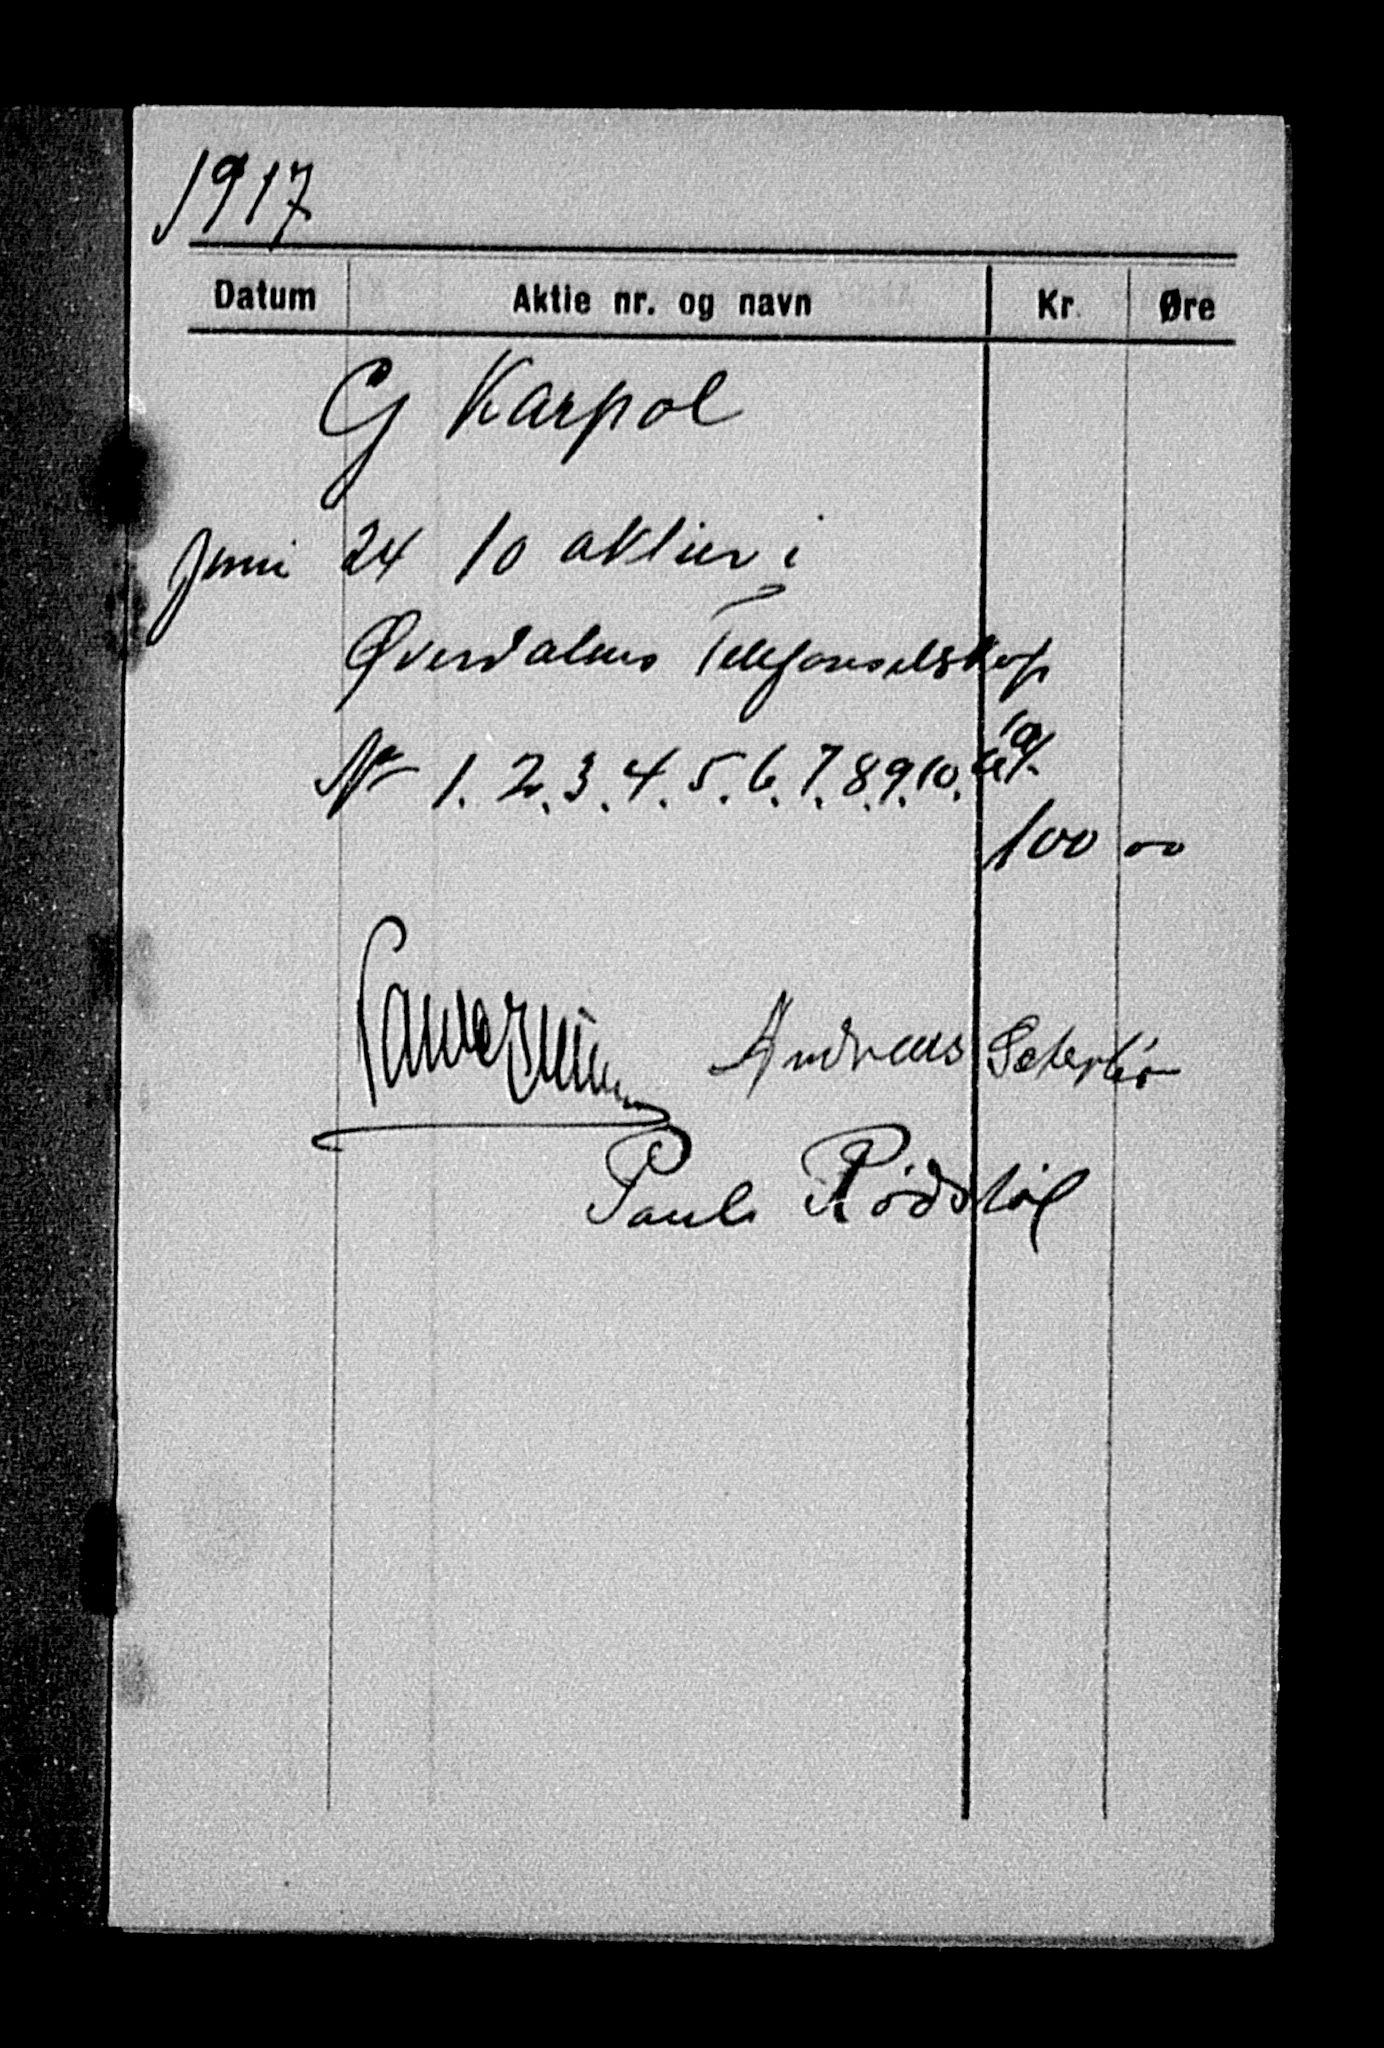 1917
Datum Aktie nr. og navn Kr. Øre
G Karpol
Juni 24 10 aktier i
Øverdalens Telefonselskap
Nr 1. 2. 3. 4. 5. 6. 7. 8. 9. 10. a 10/-
100 00
Andreas Seterbø
Paul Rødstøl